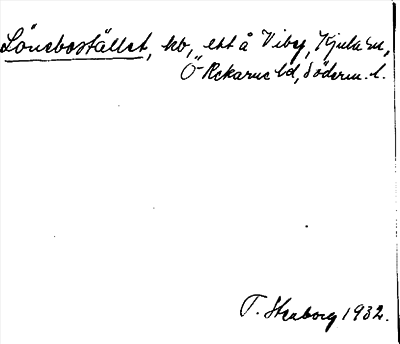 Lönebostället, hb, ett å Viby, Kjula sn,
Ö Rekarne hd, Söderm. l.
T. Stenborg 1932.